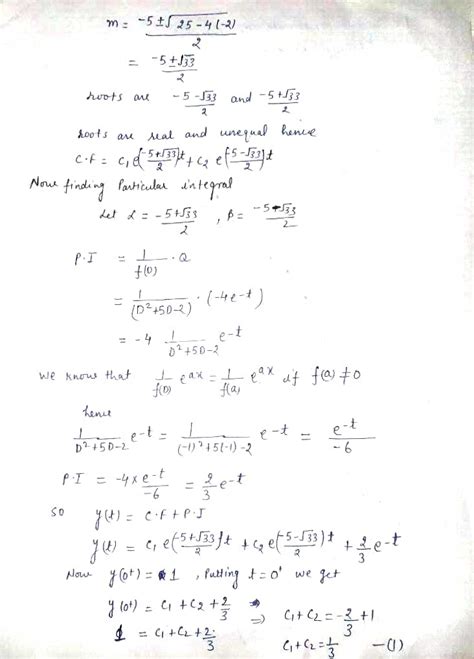 m = -5 ± √25 - 4(-2) / 2
= -5 ± √33 / 2
roots are -5-√33 / 2 and -5+√33 / 2
roots are real and unequal hence
C.F = C₁ e^(-5+√33 / 2)t + C₂ e^(-5-√33 / 2)t
Now finding Particular integral
Let α = -5+√33 / 2 , β = -5-√33 / 2
P.I = 1/f(D) · Q
= 1/(D²+5D-2) · (-4e^-t)
= -4 1/D²+5D-2 e^-t
We know that 1/f(D) e^ax = 1/f(a) e^ax if f(a) ≠ 0
hence
1/D²+5D-2 e^-t = 1/(-1)²+5(-1)-2 e^-t = e^-t/-6
P.I = -4 × e^-t/-6 = 2/3 e^-t
so y(t) = C.F + P.I
y(t) = C₁ e^(-5+√33 / 2)t + C₂ e^(-5-√33 / 2)t + 2/3 e^-t
Now y(0⁺) = 1 , Putting t = 0⁺ we get
y(0⁺) = C₁ + C₂ + 2/3 ⇒ C₁ + C₂ = -2/3 + 1
1 = C₁ + C₂ + 2/3 C₁ + C₂ = 1/3 —(1)